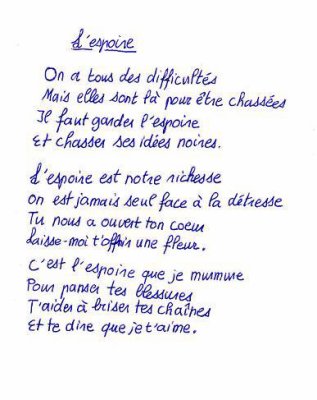 L'espoire
On a tous des difficultés
Mais elles sont là pour être chassées
Il faut garder l'espoire
Et chasser ses idées noires.
L'espoire est notre richesse
On est jamais seul face à la détresse
Tu nous a ouvert ton coeur
Laisse-moi t'offrir une fleur.
C'est l'espoire que je murmure
Pour panser tes blessures
T'aider à briser tes chaînes
Et te dire que je t'aime.